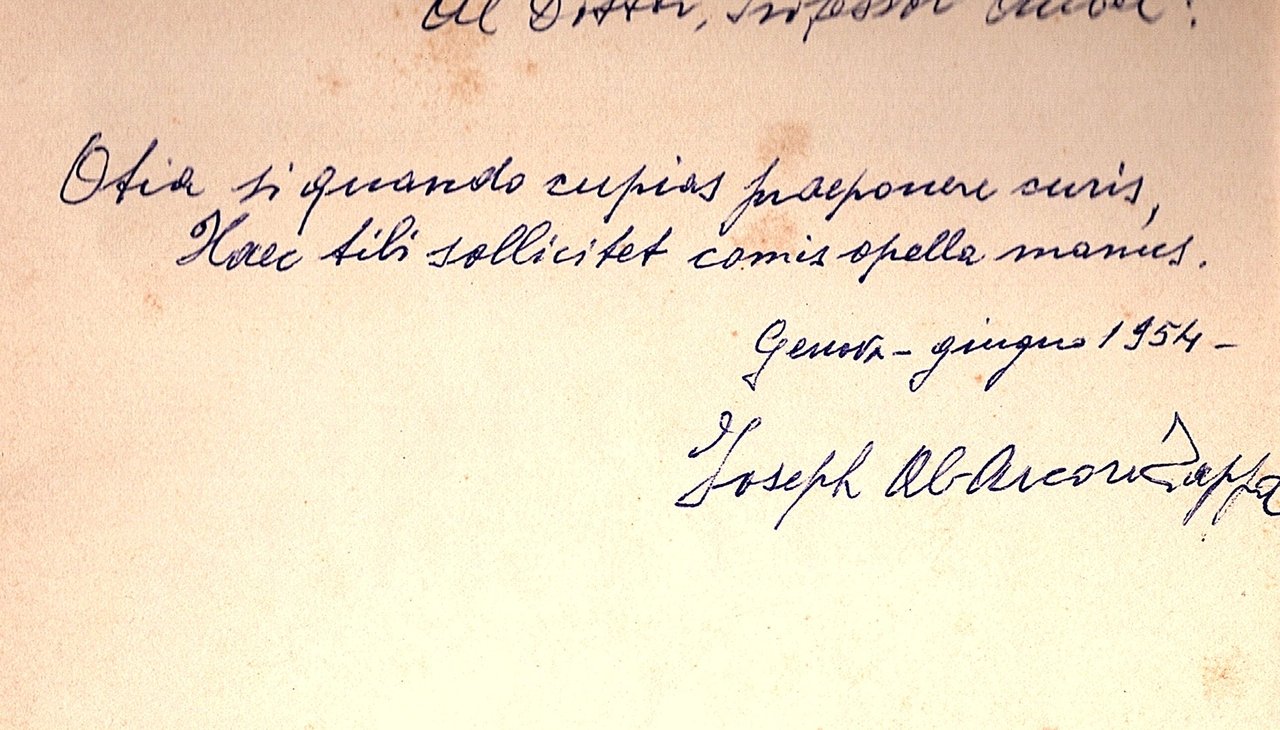 Al Dottor, Professor
Otia si quando cupias praeponere curis,
Haec tibi sollicitet comis opella manus.
Genova - giugno 1954 -
Joseph Ab-Arcore Zappa